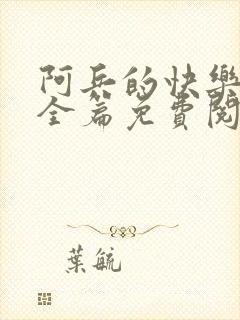 阿兵的快樂
全篇免費閱
葉毓